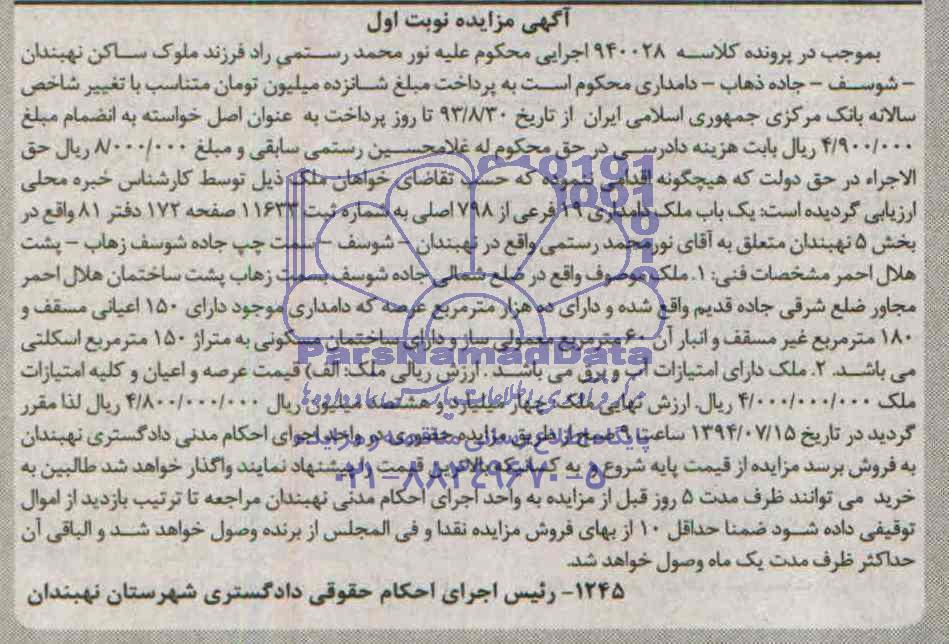 آگهی مزایده نوبت اول
بموجب در پرونده کلاسه ۹۴۰۰۲۸ اجرایی محکوم علیه نور محمد رستمی راد فرزند ملوک ساکن نهبندان
- شوسف - جاده ذهاب - دامداری محکوم است به پرداخت مبلغ شانزده میلیون تومان متناسب با تغییر شاخص
سالانه بانک مرکزی جمهوری اسلامی ایران از تاریخ ۹۳/۸/۳۰ تا روز پرداخت به عنوان اصل خواسته به انضمام مبلغ
۴/۹۰۰/۰۰۰ ریال بابت هزینه دادرسی در حق محکوم له غلامحسین رستمی سابقی و مبلغ ۸/۰۰۰/۰۰۰ ریال حق
الاجراء در حق دولت که هیچگونه اقدامی ننموده که حسب تقاضای خواهان ملک ذیل توسط کارشناس خبره محلی
ارزیابی گردیده است: یک باب ملک دامداری ۱۹ فرعی از ۷۹۸ اصلی به شماره ثبت ۱۱۶۳۳ صفحه ۱۷۲ دفتر ۸۱ واقع در
بخش ۵ نهبندان متعلق به آقای نورمحمد رستمی واقع در نهبندان - شوسف - سمت چپ جاده شوسف زهاب - پشت
هلال احمر مشخصات فنی: ۱. ملک موصوف واقع در ضلع شمالی جاده شوسف بسمت زهاب پشت ساختمان هلال احمر
مجاور ضلع شرقی جاده قدیم واقع شده و دارای ده هزار مترمربع عرصه که دامداری موجود دارای ۱۵۰ اعیانی مسقف و
۱۸۰ مترمربع غیر مسقف و انبار آن ۶۰ مترمربع معمولی ساز و دارای ساختمان مسکونی به متراژ ۱۵۰ مترمربع اسکلتی
می باشد. ۲. ملک دارای امتیازات آب و برق می باشد. ارزش ریالی ملک: الف) قیمت عرصه و اعیان و کلیه امتیازات
ملک ۴/۰۰۰/۰۰۰/۰۰۰ ریال. ارزش نهایی ملک چهار میلیارد و هشتصد میلیون ریال ۴/۸۰۰/۰۰۰/۰۰۰ ریال لذا مقرر
گردید در تاریخ ۱۳۹۴/۰۷/۱۵ ساعت ۹ صبح از طریق مزایده حضوری در واحد اجرای احکام مدنی دادگستری نهبندان
به فروش برسد مزایده از قیمت پایه شروع و به کسانیکه بالاترین قیمت را پیشنهاد نمایند واگذار خواهد شد طالبین به
خرید می توانند ظرف مدت ۵ روز قبل از مزایده به واحد اجرای احکام مدنی نهبندان مراجعه تا ترتیب بازدید از اموال
توقیفی داده شود ضمنا حداقل ۱۰ از بهای فروش مزایده نقدا و فی المجلس از برنده وصول خواهد شد و الباقی آن
حداکثر ظرف مدت یک ماه وصول خواهد شد.
۱۲۴۵- رئیس اجرای احکام حقوقی دادگستری شهرستان نهبندان
ParsNamadData
۰۲۱-۸۸۳۴۹۶۷۰-۵